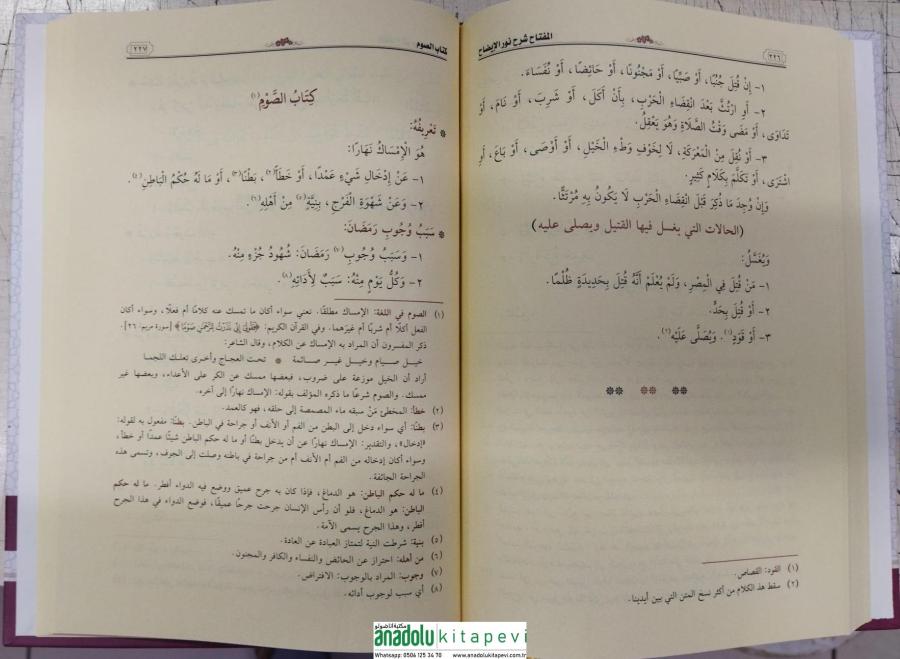 ٢٢٦
المفتاح شرح نور الإيضاح
١- إِنْ قُتِلَ جُنُبًا، أَوْ صَبِيًّا، أَوْ مَجْنُونًا، أَوْ حَائِضًا، أَوْ نُفَسَاءَ.
٢- أَوِ ارْتُثَّ بَعْدَ انْقِضَاءِ الْحَرْبِ، بِأَنْ أَكَلَ، أَوْ شَرِبَ، أَوْ نَامَ، أَوْ
تَدَاوَى، أَوْ مَضَى وَقْتُ الصَّلَاةِ وَهُوَ يَعْقِلُ.
٣- أَوْ نُقِلَ مِنْ الْمَعْرَكَةِ، لَا لِخَوْفِ وَطْءِ الْخَيْلِ، أَوْ أَوْصَى، أَوْ بَاعَ، أَوِ
اشْتَرَى، أَوْ تَكَلَّمَ بِكَلَامٍ كَثِيرٍ.
وَإِنْ وُجِدَ مَا ذُكِرَ قَبْلَ انْقِضَاءِ الْحَرْبِ لَا يَكُونُ بِهِ مُرْتَثًّا.
(الحالات التي يغسل فيها القتيل ويصلى عليه)
وَيُغَسَّلُ:
١- مَنْ قُتِلَ فِي الْمِصْرِ، وَلَمْ يُعْلَمْ أَنَّهُ قُتِلَ بِحَدِيدَةٍ ظُلْمًا.
٢- أَوْ قُتِلَ بِحَدٍّ.
٣- أَوْ قَوَدٍ(١). وَيُصَلَّى عَلَيْهِ(٢).
(١) القود: القصاص.
(٢) سقط هذا الكلام من أكثر نسخ المتن التي بين أيدينا.
كتاب الصوم
٢٢٧
كِتَابُ الصَّوْمِ(١)
* تَعْرِيفُهُ:
هُوَ الْإِمْسَاكُ نَهَارًا:
١- عَنْ إِدْخَالِ شَيْءٍ عَمْدًا، أَوْ خَطَأً(٢)، بَطْنًا(٣)، أَوْ مَا لَهُ حُكْمُ الْبَاطِنِ(٤).
٢- وَعَنْ شَهْوَةِ الْفَرْجِ، بِنِيَّةٍ(٥) مِنْ أَهْلِهِ(٦).
* سَبَبُ وُجُوبِ رَمَضَانَ:
١- وَسَبَبُ وُجُوبِ(٧) رَمَضَانَ: شُهُودُ جُزْءٍ مِنْهُ.
٢- وَكُلُّ يَوْمٍ مِنْهُ: سَبَبٌ لِأَدَائِهِ(٨).
(١) الصوم في اللغة: الإمساك مطلقًا. تعني سواء أكان ما تمسك عنه كلامًا أم فعلًا، وسواء أكان
الفعل أكلًا أم شربًا أم غيرَهما. وفي القرآن الكريم: ﴿فَقُولِي إِنِّي نَذَرْتُ لِلرَّحْمَٰنِ صَوْمًا﴾ [سورة مريم: ٢٦].
ذكر المفسرون أن المراد به الإمساك عن الكلام، وقال الشاعر:
خيل صيام وخيل غير صائمة * تحت العجاج وأخرى تعلك اللجما
أراد أن الخيل موزعة على ضروب، فبعضها ممسك عن الكر على الأعداء، وبعضها غير
ممسك. والصوم شرعًا ما ذكره المؤلف بقوله: الإمساك نهارًا إلى آخره.
(٢) خطأ: المخطئ مَنْ سبقه ماء المصمصة إلى حلقه، فهو كالعمد.
(٣) بطنًا: أي سواء دخل إلى البطن من الفم أو الأنف أو جراحة في الباطن. بطنًا: مفعول به لقوله:
«إدخال»، والتقدير: الإمساك نهارًا عن أن يدخل بطنًا أو ما له حكم الباطن شيئًا عمدًا أو خطأ،
وسواء أكان إدخاله من الفم أم الأنف أم من جراحة في باطنه وصلت إلى الجوف، وتسمى هذه
الجراحة الجائفة.
(٤) ما له حكم الباطن: هو الدماغ، فإذا كان به جرح عميق ووضع فيه الدواء أفطر. ما له حكم
الباطن: هو الدماغ، فلو أن رأس الإنسان جرحت جرحًا عميقًا، فوضع الدواء في هذا الجرح
أفطر، وهذا الجرح يسمى الآمة.
(٥) بنية: شرطت النية لتمتاز العبادة عن العادة.
(٦) من أهله: احتراز عن الحائض والنفساء والكافر والمجنون.
(٧) وجوب: المراد بالوجوب: الافتراض.
(٨) أي سبب لوجوب أدائه.
مكتبة اناضولو
anadolu kitapevi
Whatsapp: 0506 125 34 70 www.anadolukitapevi.com.tr